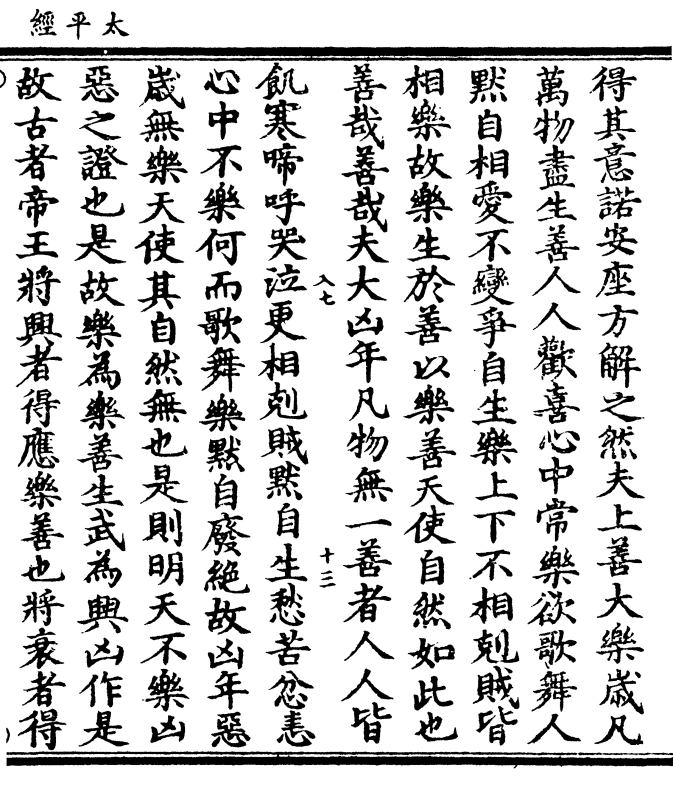 太平經
得其意諾安座方解之然夫上善大樂歲凡
萬物盡生善人人歡喜心中常樂欲歌舞人
默自相愛不變爭自生樂上下不相剋賊皆
相樂故樂生於善以樂善天使自然如此也
善哉善哉夫大凶年凡物無一善者人人皆
入七
十三
飢寒啼呼哭泣更相剋賊默自生愁苦忿恚
心中不樂何而歌舞樂默自廢絕故凶年惡
歲無樂天使其自然無也是則明天不樂凶
惡之證也是故樂為樂善生武為興凶作是
故古者帝王將興者得應樂善也將衰者得